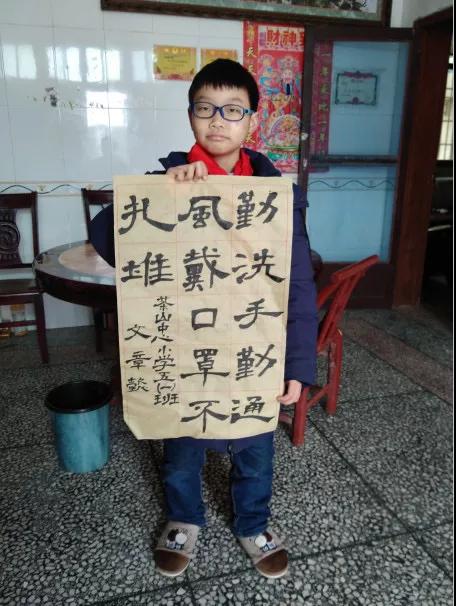 勤洗手勤通
風戴口罩不
扎堆
茶山中心小学五(一)班
文章懿
財神